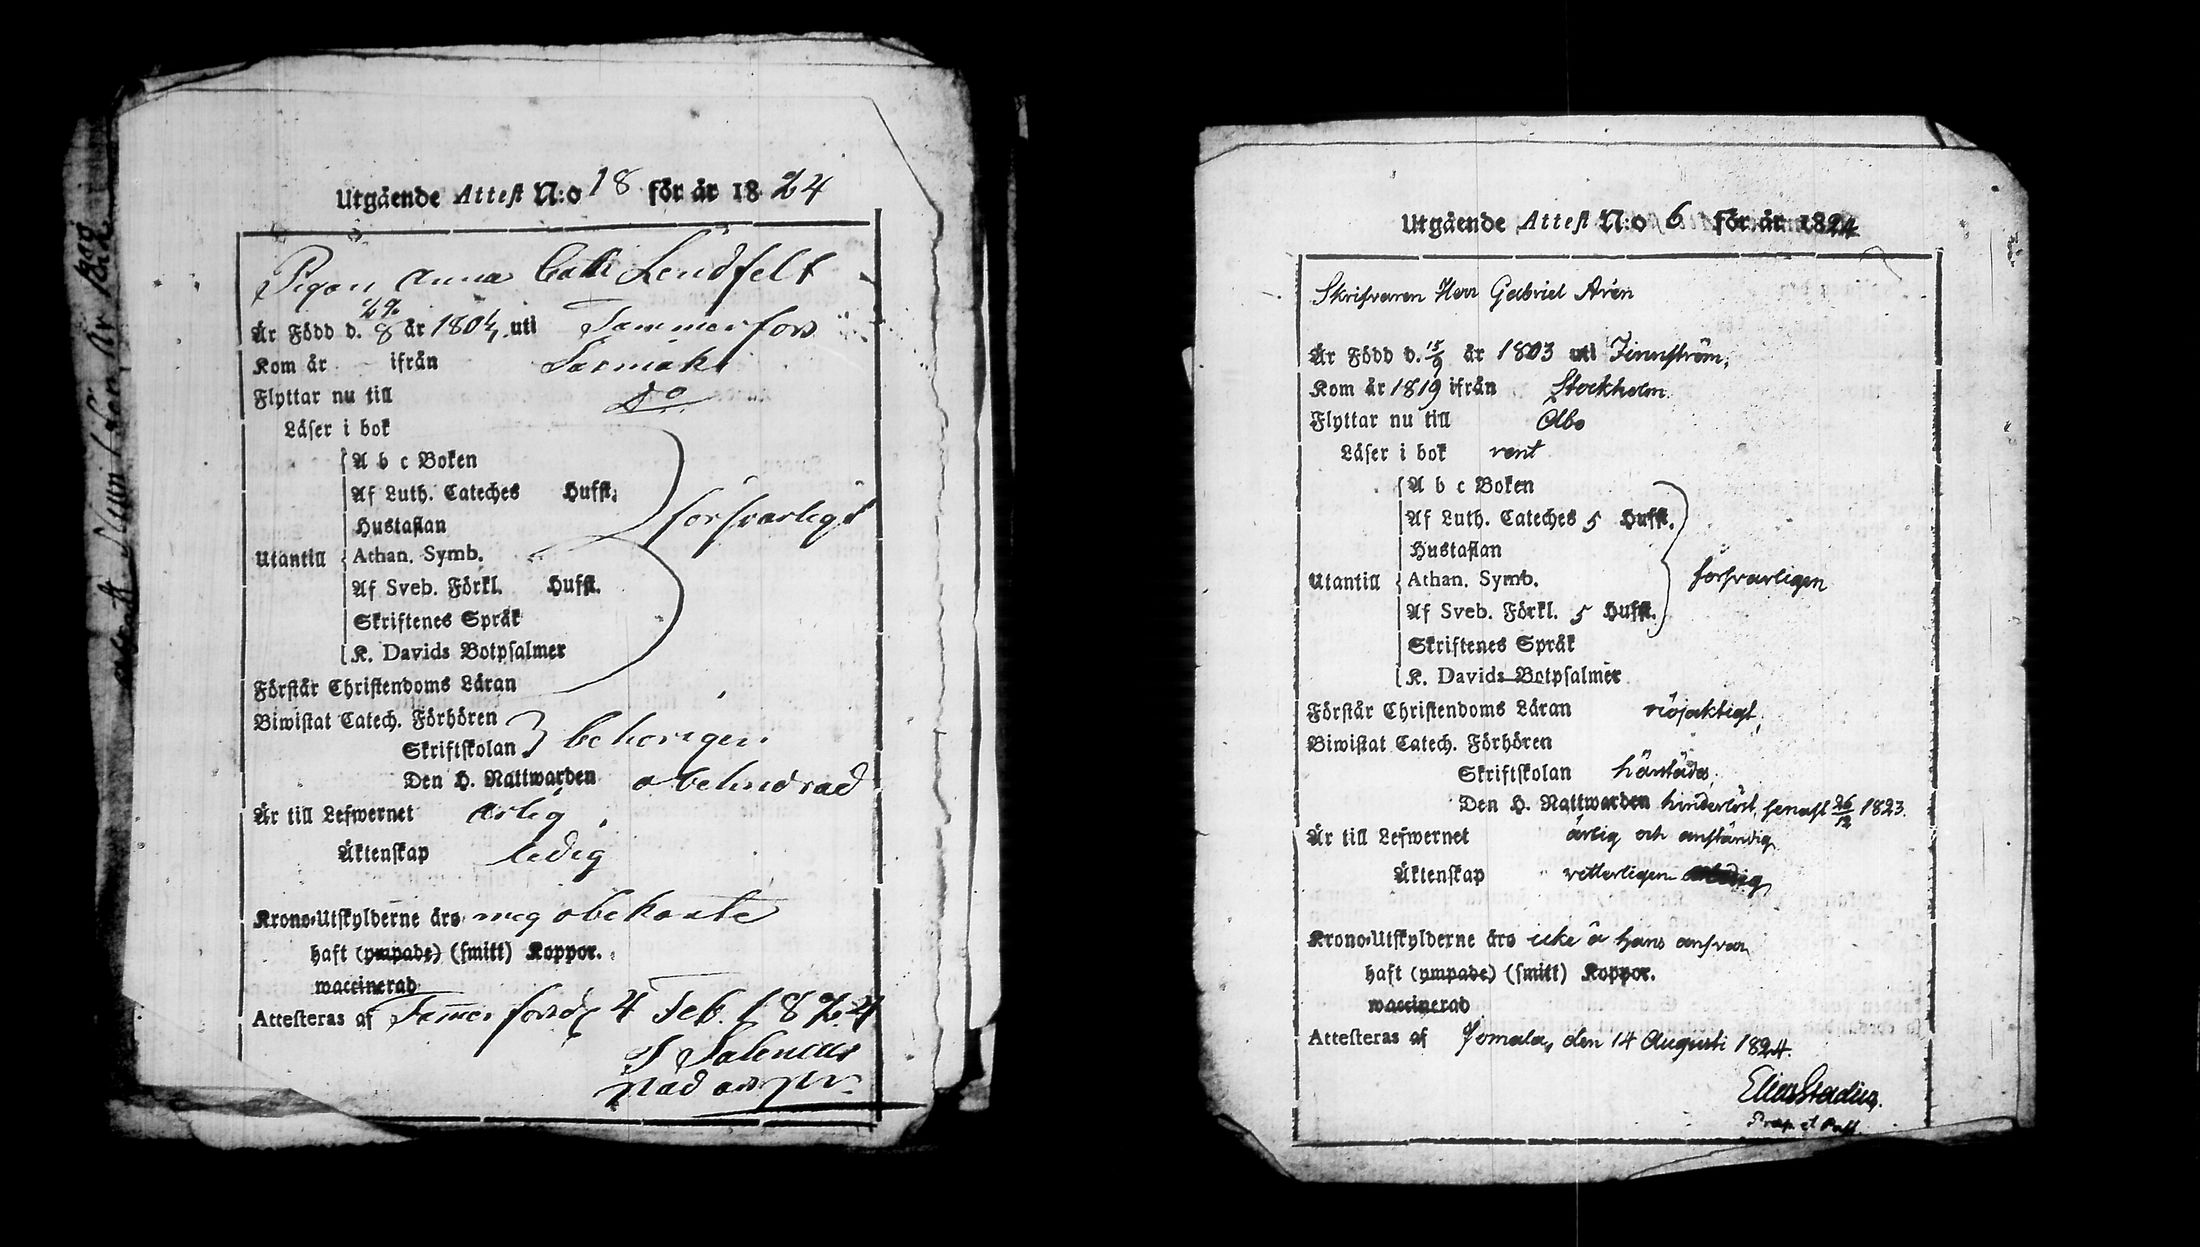 Utgående Attest N:o 18 för år 1824
Pigan Anna Cath Lindfelt
Är Född d. 29/8 år 1804 uti Tammerfors
Kom år - ifrån
Flyttar nu till Do
Läser i bok
A b c Boken
Af Luth. Cateches Hufst.
Hustaflan
försvarligt
Utantill Athan. Symb.
Af Sveb. Förkl. Hufst.
Skriftenes Språk
K. Davids Botpsalmer
Förstår Christendoms Läran
Biwistat Catech. Förhören
Skriftskolan behörigen
Den H. Nattwarden obehindrad
Är till Lefwernet ärlig
Äktenskap ledig
Krono-Utskylderne äro mig obekante
haft (ympade) (smitt) Koppor.
waccinerad
Attesteras af Tammerfors d. 4 Feb. 1824
Utgående Attest N:o 6 för år 1824
Skrifvaren Herr Gabriel Arén
Är Född d. 15/9 år 1803 uti
Kom år 1819 ifrån Stockholm
Flyttar nu till Åbo
Läser i bok rent
A b c Boken
Af Luth. Cateches 5 Hufst.
Hustaflan
Utantill Athan. Symb. försvarligen
Af Sveb. Förkl. 5 Hufst.
Skriftenes Språk
K. Davids Botpsalmer
Förstår Christendoms Läran nöjaktigt,
Biwistat Catech. Förhören
Skriftskolan härstädes,
Den H. Nattwarden hinderlöst, senast 26/12 1823.
Är till Lefwernet ärlig och anständig
Äktenskap vetterligen ledig
Krono-Utskylderne äro icke å hans ansvar
haft (ympade) (smitt) Koppor.
waccinerad
Attesteras af Jomala, den 14 Augusti 1824.
Elias Stadius.
Præp. et Past.